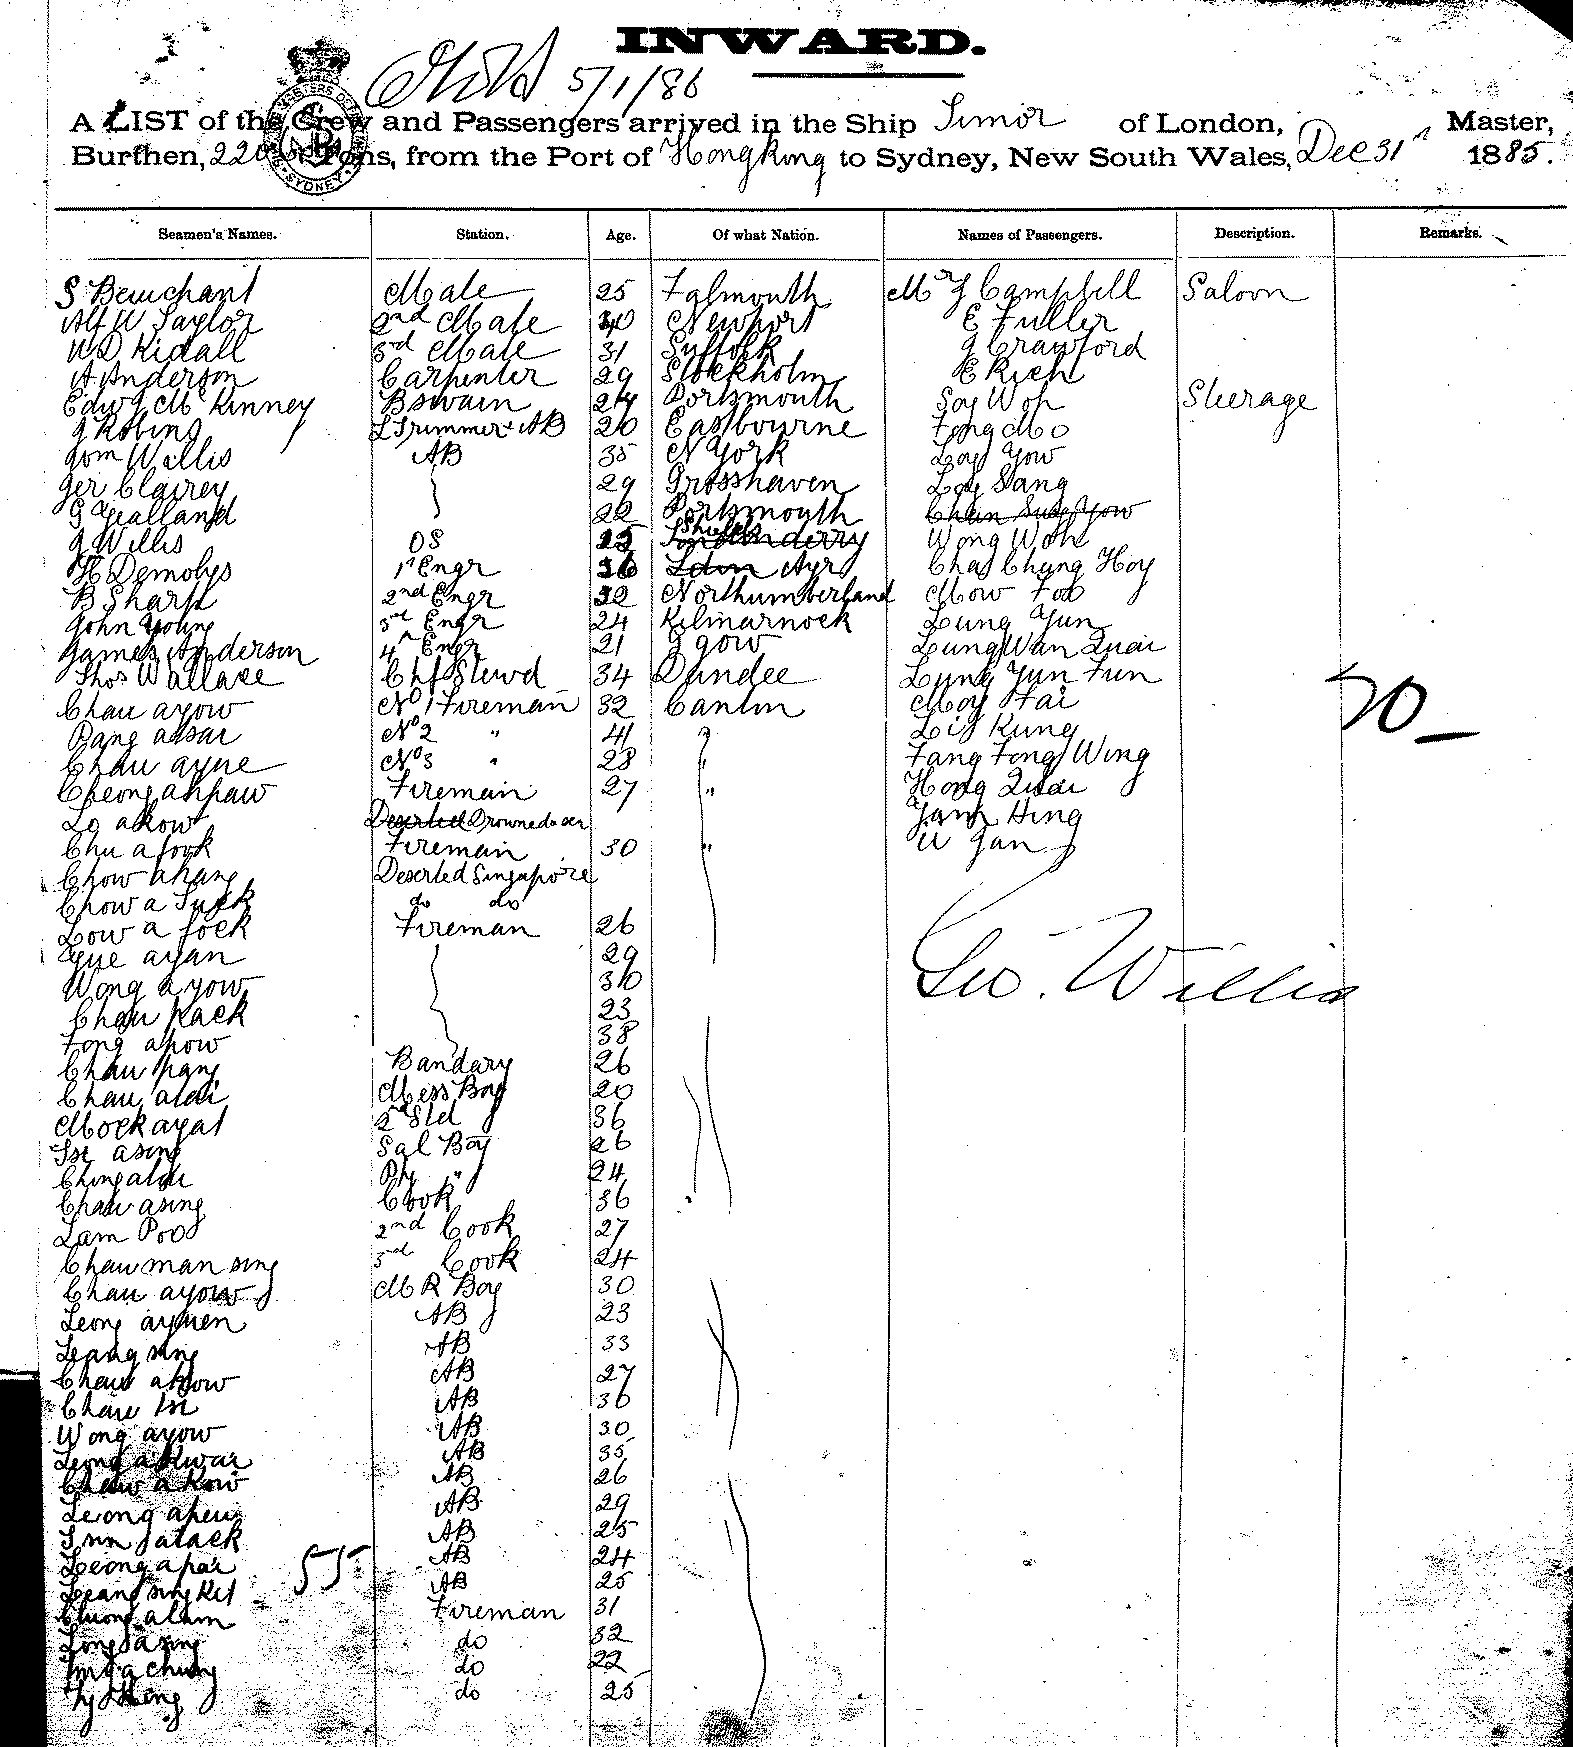 INWARD.
5/1/86
A LIST of the Crew and Passengers arrived in the Ship Timor of London, Master,
Burthen, Tons, from the Port of Hongkong to Sydney, New South Wales, Dec 31st 1885.
Seamen's Names. Station. Age. Of what Nation. Names of Passengers. Description. Remarks.
S Beuchant Mate 25 Falmouth Mr J Campbell Saloon
Alf W Taylor 2nd Mate Newport E Fuller
W D Kidall 3rd Mate 31 Suffolk J Crawford
A Anderson Carpenter 29 Stockholm E Rich
Edwd McKinney Bswain 24 Portsmouth Soy Woh Steerage
J Robins LTrimmer + AB 20 Eastbourne Fong Mo
Tom Willis AB 35 N York Loy Yow
Jer Clairey 29 Crosshaven Loy Sang
S Yealland 22 Portsmouth Chan Sung Yow
J Willis OS Shields Wong Woh
H Demolys 1st Engr 36 Ldon Ayr Chas Chung Hoy
B Sharp 2nd Engr 32 Northumberland Mow Foo
John Young 3rd Engr 24 Kilmarnock Leung Yun
James Anderson 4th Engr 21 Ggow Leung Wan Quai
Thos Wallace Chf Stewd 34 Dundee Lung Yun Fun
Chau ayow No 1 Fireman 32 Canton Moy Fai
Pang assai No 2 " 41 " Loy Kung
Chau ayne No 3 " 28 " Fang Fong Wing
Cheong ahpaw Fireman 27 " Hong Quai
Lo akow Deserted Drowned Yam Hing
Chu a fook Fireman 30 " W Yan
Chow ahang Deserted Singapore
Chow a Suck do do
Low a fock Fireman 26
Yue ayan 29
Geo. Willis
Wong ayow 30
Chau Kack 23
Fong ahow 38
Chau pang Bandary 26
Chau alai Mess Boy 20
Mock ayat 2nd Std 36
asing Sal Boy 26
Ching alai Pty " 24
Chau asing Cook 36
Lam Poo 2nd Cook 27
Chau man sing 3rd Cook 24
Chau ayow M R Boy 30
Leong ayuen AB 23
Leang sing AB 33
Chau ahow AB 27
Chau AB 36
Wong ayow AB 30
Leong a Kwai AB 35
Chaw a Kow AB 26
Leong apew AB 29
atack AB 25
Leong apai AB 24
Leang sing Kit AB 25
55
Cheong alum Fireman 31
Long a sing do 32
a chung do 22
do 25
20